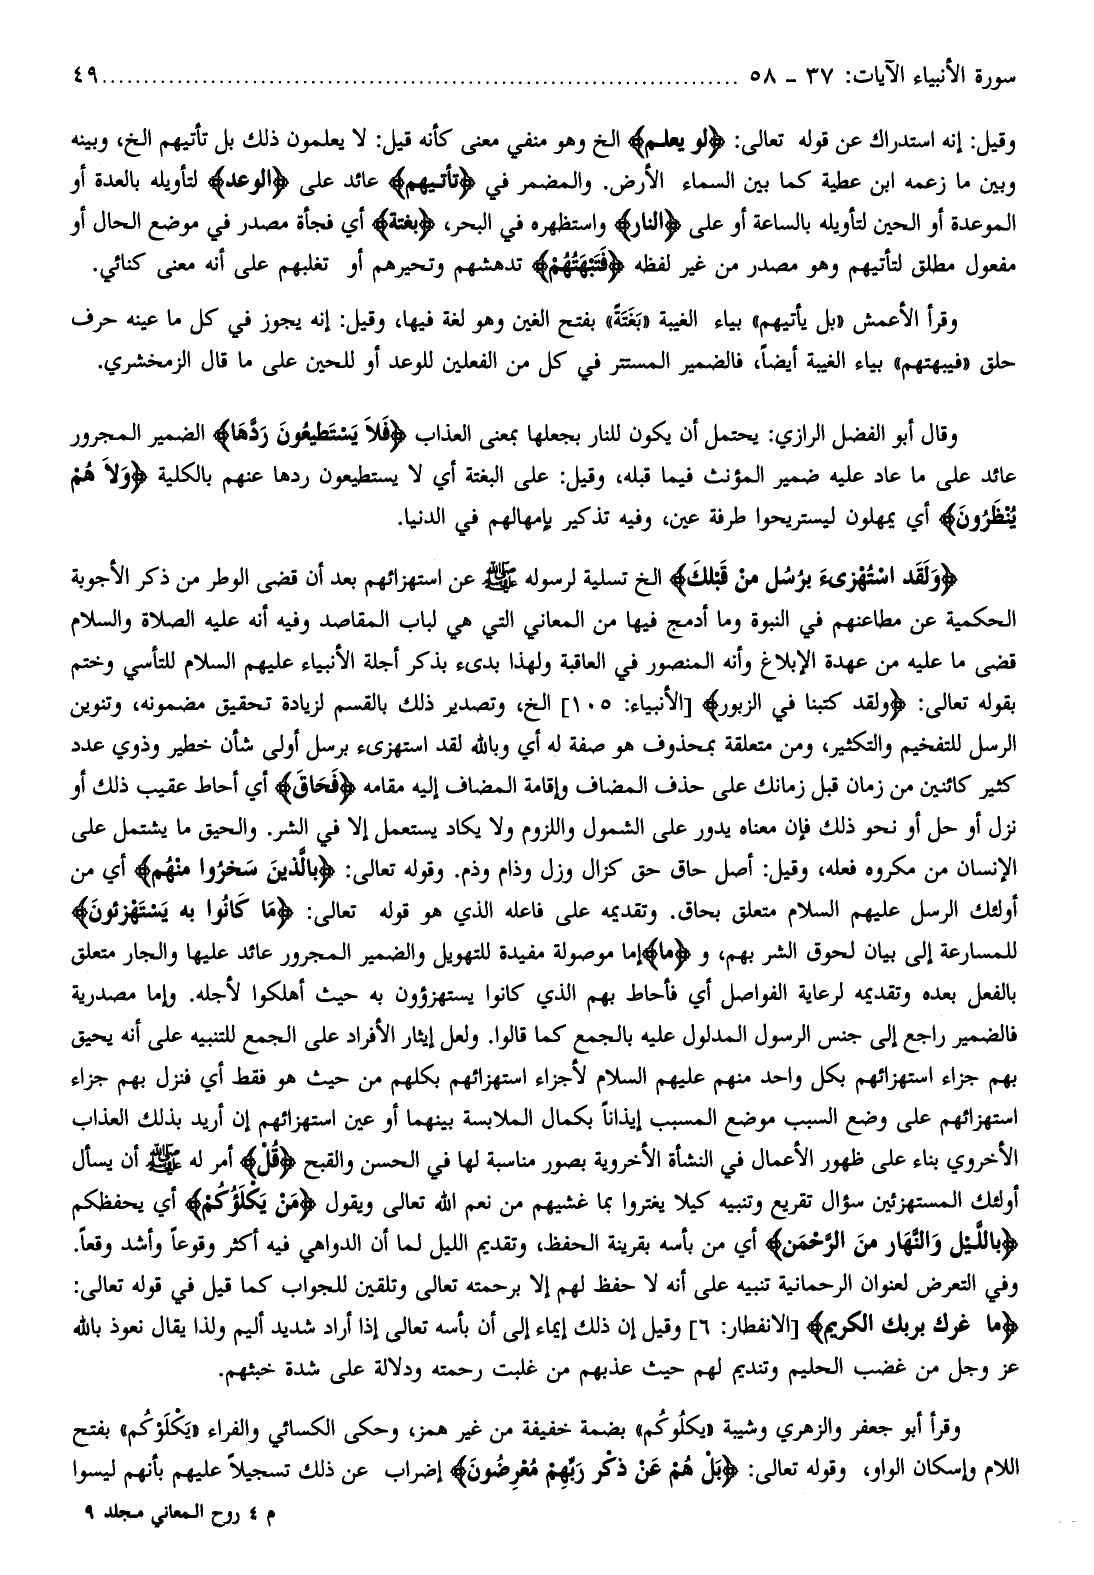 سورة الأنبياء الآيات: ٣٧ ـ ٥٨ .......................................................................... ٤٩
وقيل: إنه استدراك عن قوله تعالى: ﴿لو يعلم﴾ الخ وهو منفي معنى كأنه قيل: لا يعلمون ذلك بل تأتيهم الخ، وبينه
وبين ما زعمه ابن عطية كما بين السماء الأرض. والمضمر في ﴿تأتيهم﴾ عائد على ﴿الوعد﴾ لتأويله بالعدة أو
الموعدة أو الحين لتأويله بالساعة أو على ﴿النار﴾ واستظهره في البحر، ﴿بغتة﴾ أي فجأة مصدر في موضع الحال أو
مفعول مطلق لتأتيهم وهو مصدر من غير لفظه ﴿فَتَبْهَتُهُمْ﴾ تدهشهم وتحيرهم أو تغلبهم على أنه معنى كنائي.
وقرأ الأعمش «بل يأتيهم» بياء الغيبة «بَغَتَةً» بفتح الغين وهو لغة فيها، وقيل: إنه يجوز في كل ما عينه حرف
حلق «فيبهتهم» بياء الغيبة أيضاً، فالضمير المستتر في كل من الفعلين للوعد أو للحين على ما قال الزمخشري.
وقال أبو الفضل الرازي: يحتمل أن يكون للنار بجعلها بمعنى العذاب ﴿فَلاَ يَسْتَطيعُونَ رَدَّهَا﴾ الضمير المجرور
عائد على ما عاد عليه ضمير المؤنث فيما قبله، وقيل: على البغتة أي لا يستطيعون ردها عنهم بالكلية ﴿وَلاَ هُمْ
يُنْظَرُونَ﴾ أي يمهلون ليستريحوا طرفة عين، وفيه تذكير بإمهالهم في الدنيا.
﴿وَلَقَد اسْتُهْزِىءَ برُسُل منْ قَبْلكَ﴾ الخ تسلية لرسوله ﷺ عن استهزائهم بعد أن قضى الوطر من ذكر الأجوبة
الحكمية عن مطاعنهم في النبوة وما أدمج فيها من المعاني التي هي لباب المقاصد وفيه أنه عليه الصلاة والسلام
قضى ما عليه من عهدة الإبلاغ وأنه المنصور في العاقبة ولهذا بدىء بذكر أجلة الأنبياء عليهم السلام للتأسي وختم
بقوله تعالى: ﴿ولقد كتبنا في الزبور﴾ [الأنبياء: ١٠٥] الخ، وتصدير ذلك بالقسم لزيادة تحقيق مضمونه، وتنوين
الرسل للتفخيم والتكثير، ومن متعلقة بمحذوف هو صفة له أي وبالله لقد استهزىء برسل أولى شأن خطير وذوي عدد
كثير كائنين من زمان قبل زمانك على حذف المضاف وإقامة المضاف إليه مقامه ﴿فَحَاقَ﴾ أي أحاط عقيب ذلك أو
نزل أو حل أو نحو ذلك فإن معناه يدور على الشمول واللزوم ولا يكاد يستعمل إلا في الشر. والحيق ما يشتمل على
الإنسان من مكروه فعله، وقيل: أصل حاق حق كزال وزل وذام وذم. وقوله تعالى: ﴿بالَّذينَ سَخرُوا منْهُم﴾ أي من
أولئك الرسل عليهم السلام متعلق بحاق. وتقديمه على فاعله الذي هو قوله تعالى: ﴿مَا كَانُوا به يَسْتَهْزئونَ﴾
للمسارعة إلى بيان لحوق الشر بهم، و ﴿ما﴾إما موصولة مفيدة للتهويل والضمير المجرور عائد عليها والجار متعلق
بالفعل بعده وتقديمه لرعاية الفواصل أي فأحاط بهم الذي كانوا يستهزؤون به حيث أهلكوا لأجله. وإما مصدرية
فالضمير راجع إلى جنس الرسول المدلول عليه بالجمع كما قالوا. ولعل إيثار الأفراد على الجمع للتنبيه على أنه يحيق
بهم جزاء استهزائهم بكل واحد منهم عليهم السلام لأجزاء استهزائهم بكلهم من حيث هو فقط أي فنزل بهم جزاء
استهزائهم على وضع السبب موضع المسبب إيذاناً بكمال الملابسة بينهما أو عين استهزائهم إن أريد بذلك العذاب
الأخروي بناء على ظهور الأعمال في النشأة الأخروية بصور مناسبة لها في الحسن والقبح ﴿قُلْ﴾ أمر له ﷺ أن يسأل
أولئك المستهزئين سؤال تقريع وتنبيه كيلا يغتروا بما غشيهم من نعم الله تعالى ويقول ﴿مَنْ يَكْلَؤُكُمْ﴾ أي يحفظكم
﴿باللَّيْل وَالنَّهَار منَ الرَّحْمَن﴾ أي من بأسه بقرينة الحفظ، وتقديم الليل لما أن الدواهي فيه أكثر وقوعاً وأشد وقعاً.
وفي التعرض لعنوان الرحمانية تنبيه على أنه لا حفظ لهم إلا برحمته تعالى وتلقين للجواب كما قيل في قوله تعالى:
﴿ما غرك بربك الكريم﴾ [الانفطار: ٦] وقيل إن ذلك إيماء إلى أن بأسه تعالى إذا أراد شديد أليم ولذا يقال نعوذ بالله
عز وجل من غضب الحليم وتنديم لهم حيث عذبهم من غلبت رحمته ودلالة على شدة خبثهم.
وقرأ أبو جعفر والزهري وشيبة «يكلُوكُم» بضمة خفيفة من غير همز، وحكى الكسائي والفراء «يَكْلَوْكُم» بفتح
اللام وإسكان الواو، وقوله تعالى: ﴿بَلْ هُمْ عَنْ ذكْر رَبِّهمْ مُعْرضُونَ﴾ إضراب عن ذلك تسجيلاً عليهم بأنهم ليسوا
م ٤ روح المعاني مجلد ٩